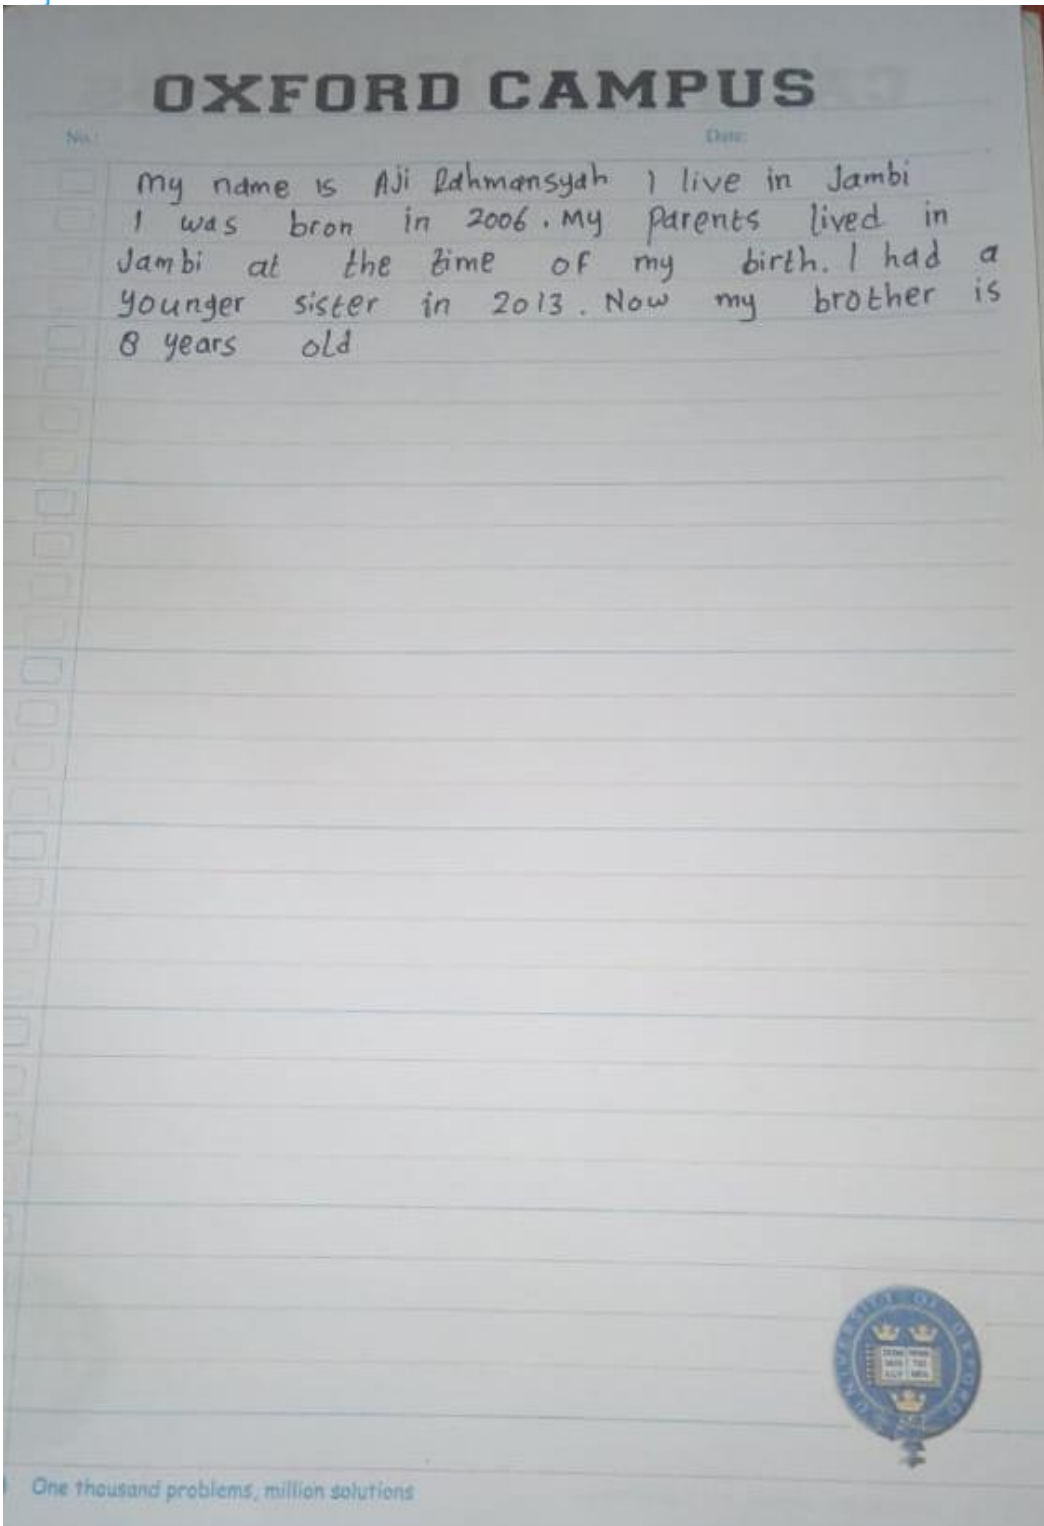 OXFORD CAMPUS
No.: Date:
My name is Aji Rahmansyah I live in Jambi
I was bron in 2006. My parents lived in
Jambi at the time of my birth. I had a
younger sister in 2013. Now my brother is
8 years old
UNIVERSITY OF OXFORD
One thousand problems, million solutions